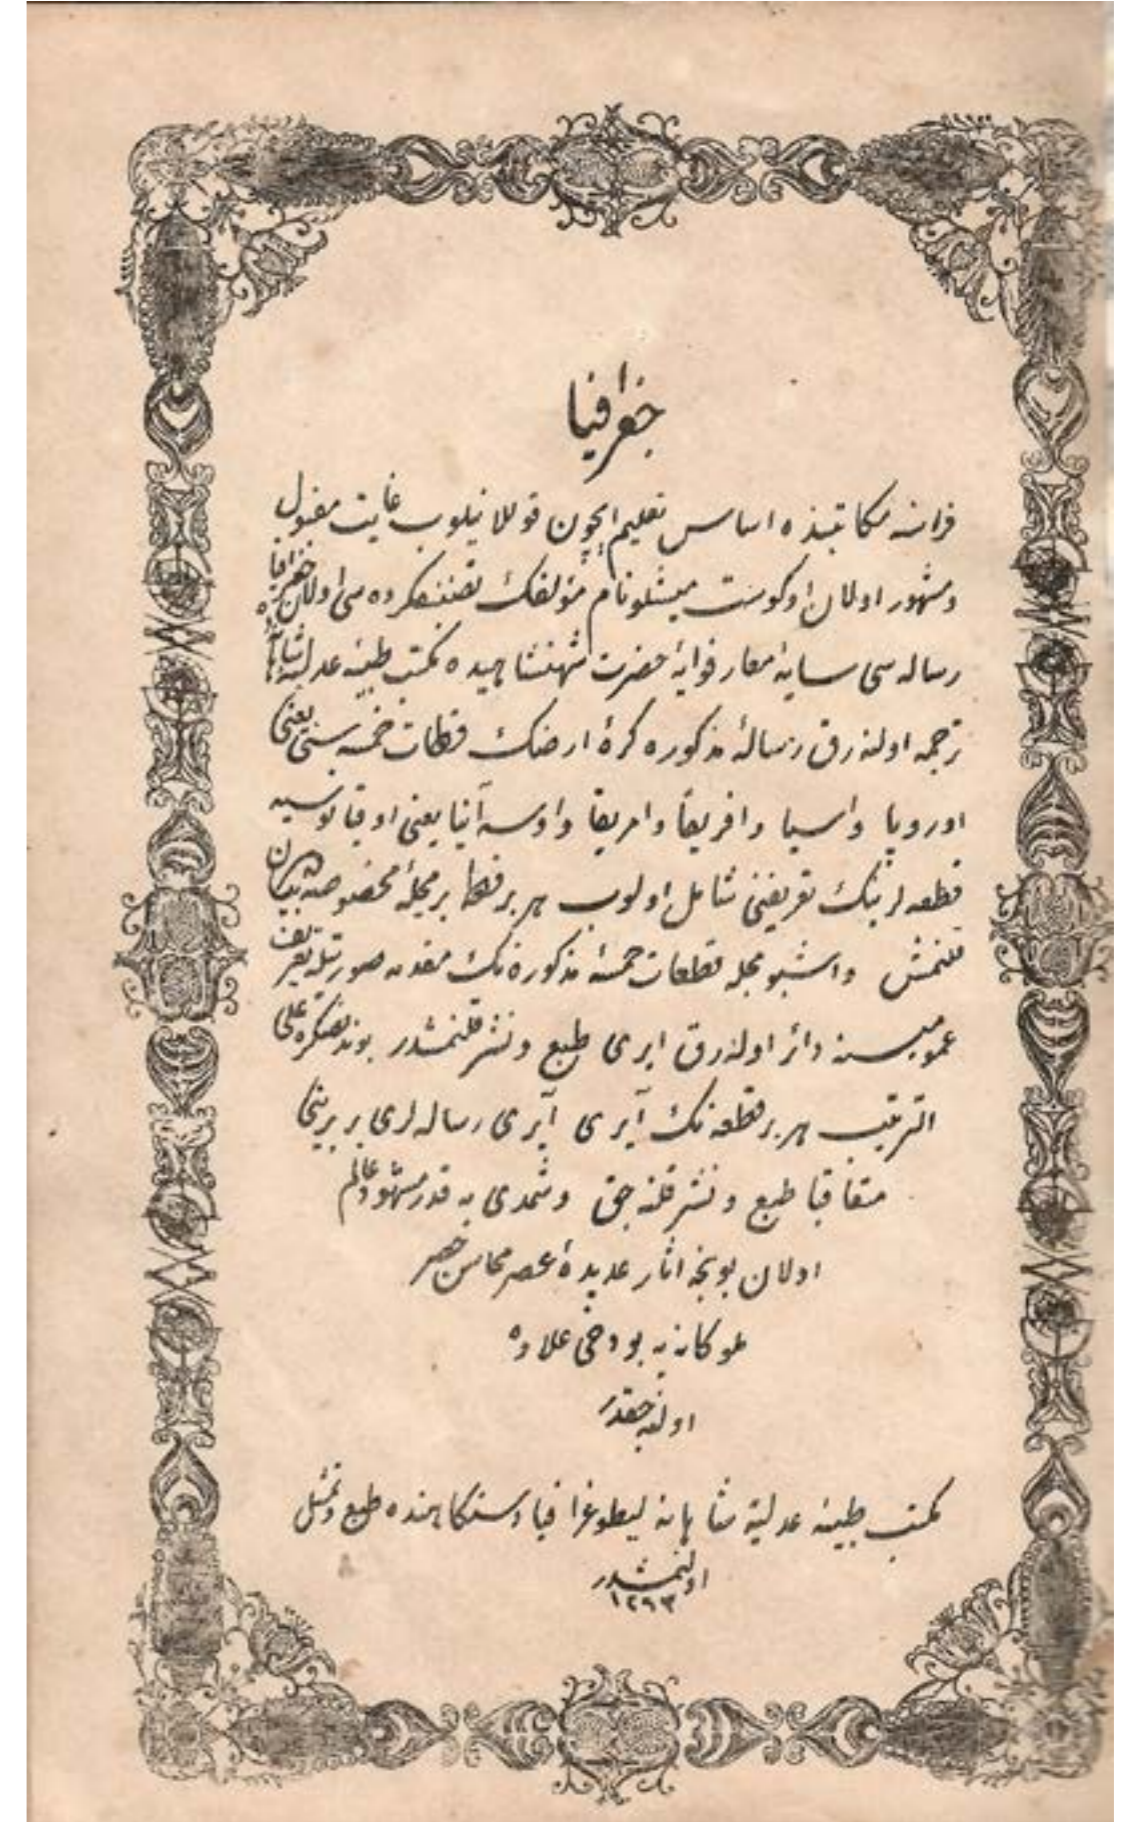 جغرافیا
فرانسه مكاتبنده اساس تعلیم ایچون قوللانیلوب غایت مقبول
و مشهور اولان اوكوست میشلو نام مؤلفك تصنیفكرده سی اولان جغرافیا
رساله سی سایهٔ معارفوایهٔ حضرت شهنشاهیده مكتب طبیهٔ عدلیهٔ شاهانه ده
ترجمه اولنه رق رسالهٔ مذكوره كرهٔ ارضك قطعات خمسه سنی یعنی
اوروپا و اسیا و افریقا و امریقا و اوسه آنیا یعنی اوقیانوسیه
قطعه لرینك تعریفنی شامل اولوب هر بر قطعه بر مجلهٔ مخصوصه ده بیان
قلنمش و اشبو مجله قطعات خمسهٔ مذكوره نك مقدمه صورتیله تعریف
عمومیسنه دائر اوله رق ایری طبع و نشر قلنمشدر بوندنصكره علی
الترتیب هر بر قطعه نك آیری آیری رساله لری بربرینی
متعاقبا طبع و نشر قلنه جق و شمدی یه قدر مشهود عالم
اولان بونجه اثار عدیدهٔ عصر محاسن حصر
ملوكانه یه بودخی علاوه
اولنه جقدر
مكتب طبیهٔ عدلیهٔ شاهانه لیطوغرافیا دستكاهنده طبع و تمثیل
اولنمشدر
١٢٩٣